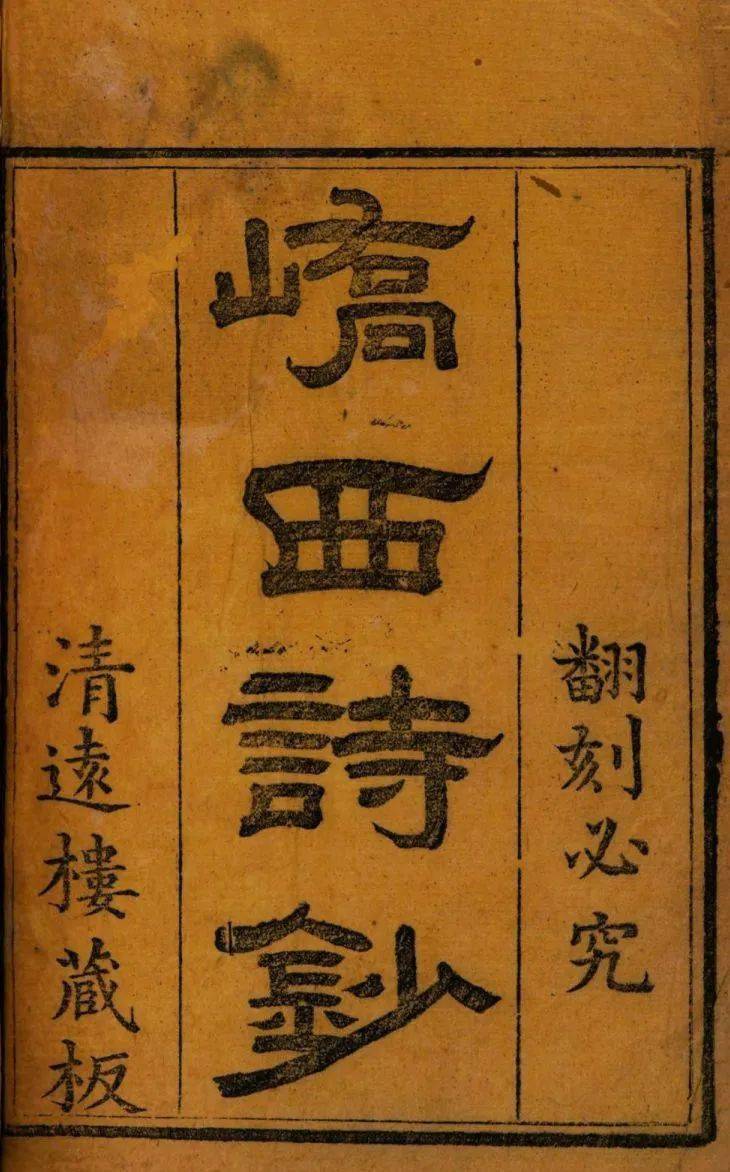 翻刻必究
嶠西詩鈔
清遠樓藏板